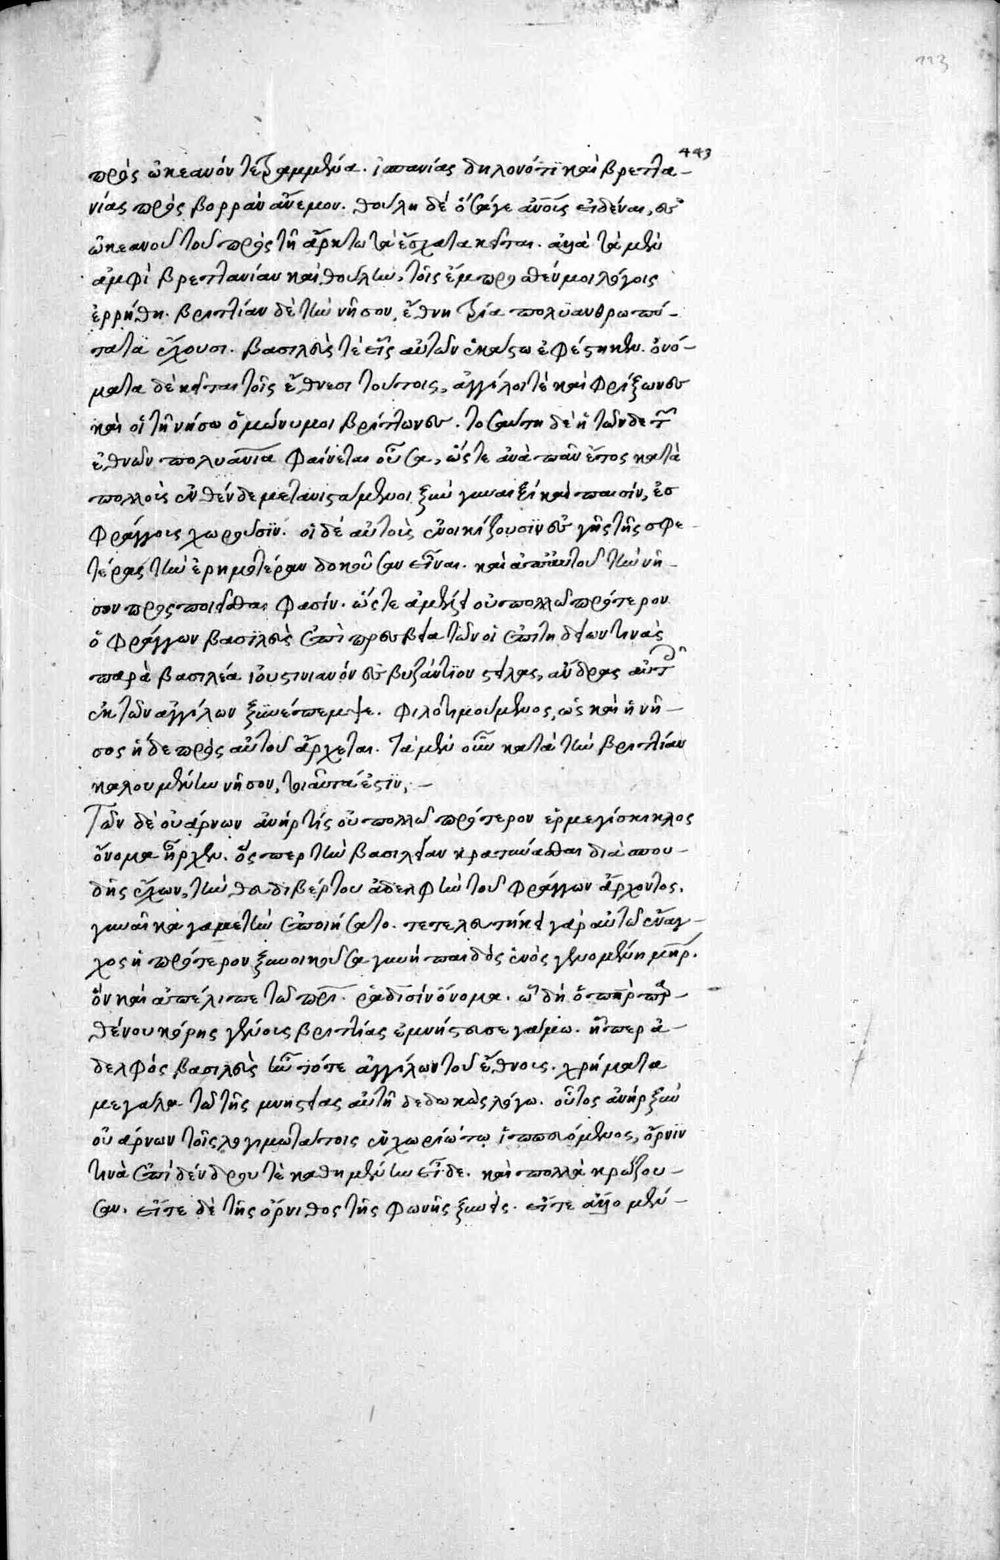 113
443
πρὸς ὠκεανὸν τετραμμένα. ἱσπανίας δηλονότι καὶ βρεττα-
νίας πρὸς βορρᾶν ἄνεμον. θούλη δὲ ὅσά γε ἀνθρώπους εἰδέναι, ἐς
ὠκεανοῦ τοῦ πρὸς τῇ ἄρκτῳ τὰ ἔσχατα κεῖται. ἀλλὰ τὰ μὲν
ἀμφὶ βρεττανίαν καὶ θούλην, τοῖς ἔμπροσθέν μοι λόγοις
ἐρρήθη. βριττίαν δὲ τὴν νῆσον, ἔθνη τρία πολυανθρωπό-
τατα ἔχουσι. βασιλεὺς τὲ εἷς αὐτῶν ἑκάστῳ ἐφέστηκεν. ὀνό-
ματα δὲ κεῖται τοῖς ἔθνεσι τούτοις, ἀγγίλοι τὲ καὶ φρίξωνες
καὶ οἱ τῇ νήσῳ ὁμώνυμοι βρίττωνες. τοσαύτη δὲ ἡ τῶνδε τῶν
ἐθνῶν πολυανθρωπία φαίνεται οὖσα, ὥστε ἀνὰ πᾶν ἔτος κατὰ
πολλοὺς ἐνθένδε μετανιστάμενοι ξὺν γυναιξὶ καὶ παισὶν, ἐς
φράγγους χωροῦσιν. οἱ δὲ αὐτοὺς ἐνοικίζουσιν ἐς γῆς τῆς σφε-
τέρας τὴν ἐρημοτέραν δοκοῦσαν εἶναι. καὶ ἀπ' αὐτοῦ τὴν νῆ-
σον προσποιεῖσθαι φασίν. ὥστε ἀμέλει οὐ πολλῷ πρότερον
ὁ φράγγων βασιλεὺς ἐπὶ πρεσβείᾳ τῶν οἱ ἐπιτηδείων τινὰς
παρὰ βασιλέα ἰουστινιανὸν ἐς βυζάντιον στείλας, ἄνδρας αὐτοῖς
ἐκ τῶν ἀγγίλων ξυνέπεμψε. φιλοτιμούμενος, ὡς καὶ ἡ νῆ-
σος ἥδε πρὸς αὐτοῦ ἄρχεται. τὰ μὲν οὖν κατὰ τὴν βριττίαν
καλουμένην νῆσον, τοιαῦτά ἐστιν, –
Τῶν δὲ οὐάρνων ἀνήρ τίς οὐ πολλῷ πρότερον ἑρμεγίσκικλος
ὄνομα ἦρχεν. ὅσπερ τὴν βασιλείαν κρατύνασθαι διὰ σπου-
δῆς ἔχων, τὴν θευδιβέρτου ἀδελφὴν τοῦ φράγγων ἄρχοντος,
γυναῖκα γαμετὴν ἐποιήσατο. τετελευτήκει γὰρ αὐτῷ ἔναγ-
χος ἡ πρότερον ξυνοικοῦσα γυνὴ παιδὸς ἑνὸς γενομένη μήτηρ.
ὃν καὶ ἀπέλιπε τῷ πατρὶ. ῥάδισιν ὄνομα. ᾧ δὴ ὁ πατὴρ παρ-
θένου κόρης γένους βριττίας ἐμνήστευσε γάμῳ. ἧσπερ ἀ-
δελφὸς βασιλεὺς ἦν τότε ἀγγίλων τοῦ ἔθνους. χρήματα
μεγάλα τῷ τῆς μνηστείας αὐτῇ δεδωκὼς λόγῳ. οὗτος ἀνὴρ ξὺν
οὐάρνων τοῖς λογιμωτάτοις ἐν χωρίῳ τῳ ἱππευόμενος, ὄρνιν
τινὰ ἐπὶ δένδρου τὲ καθημένην εἶδε. καὶ πολλὰ κρώζου-
σαν. εἴτε δὲ τῆς ὄρνιθος τῆς φωνῆς ξυνεὶς. εἴτε ἄλλο μὲν